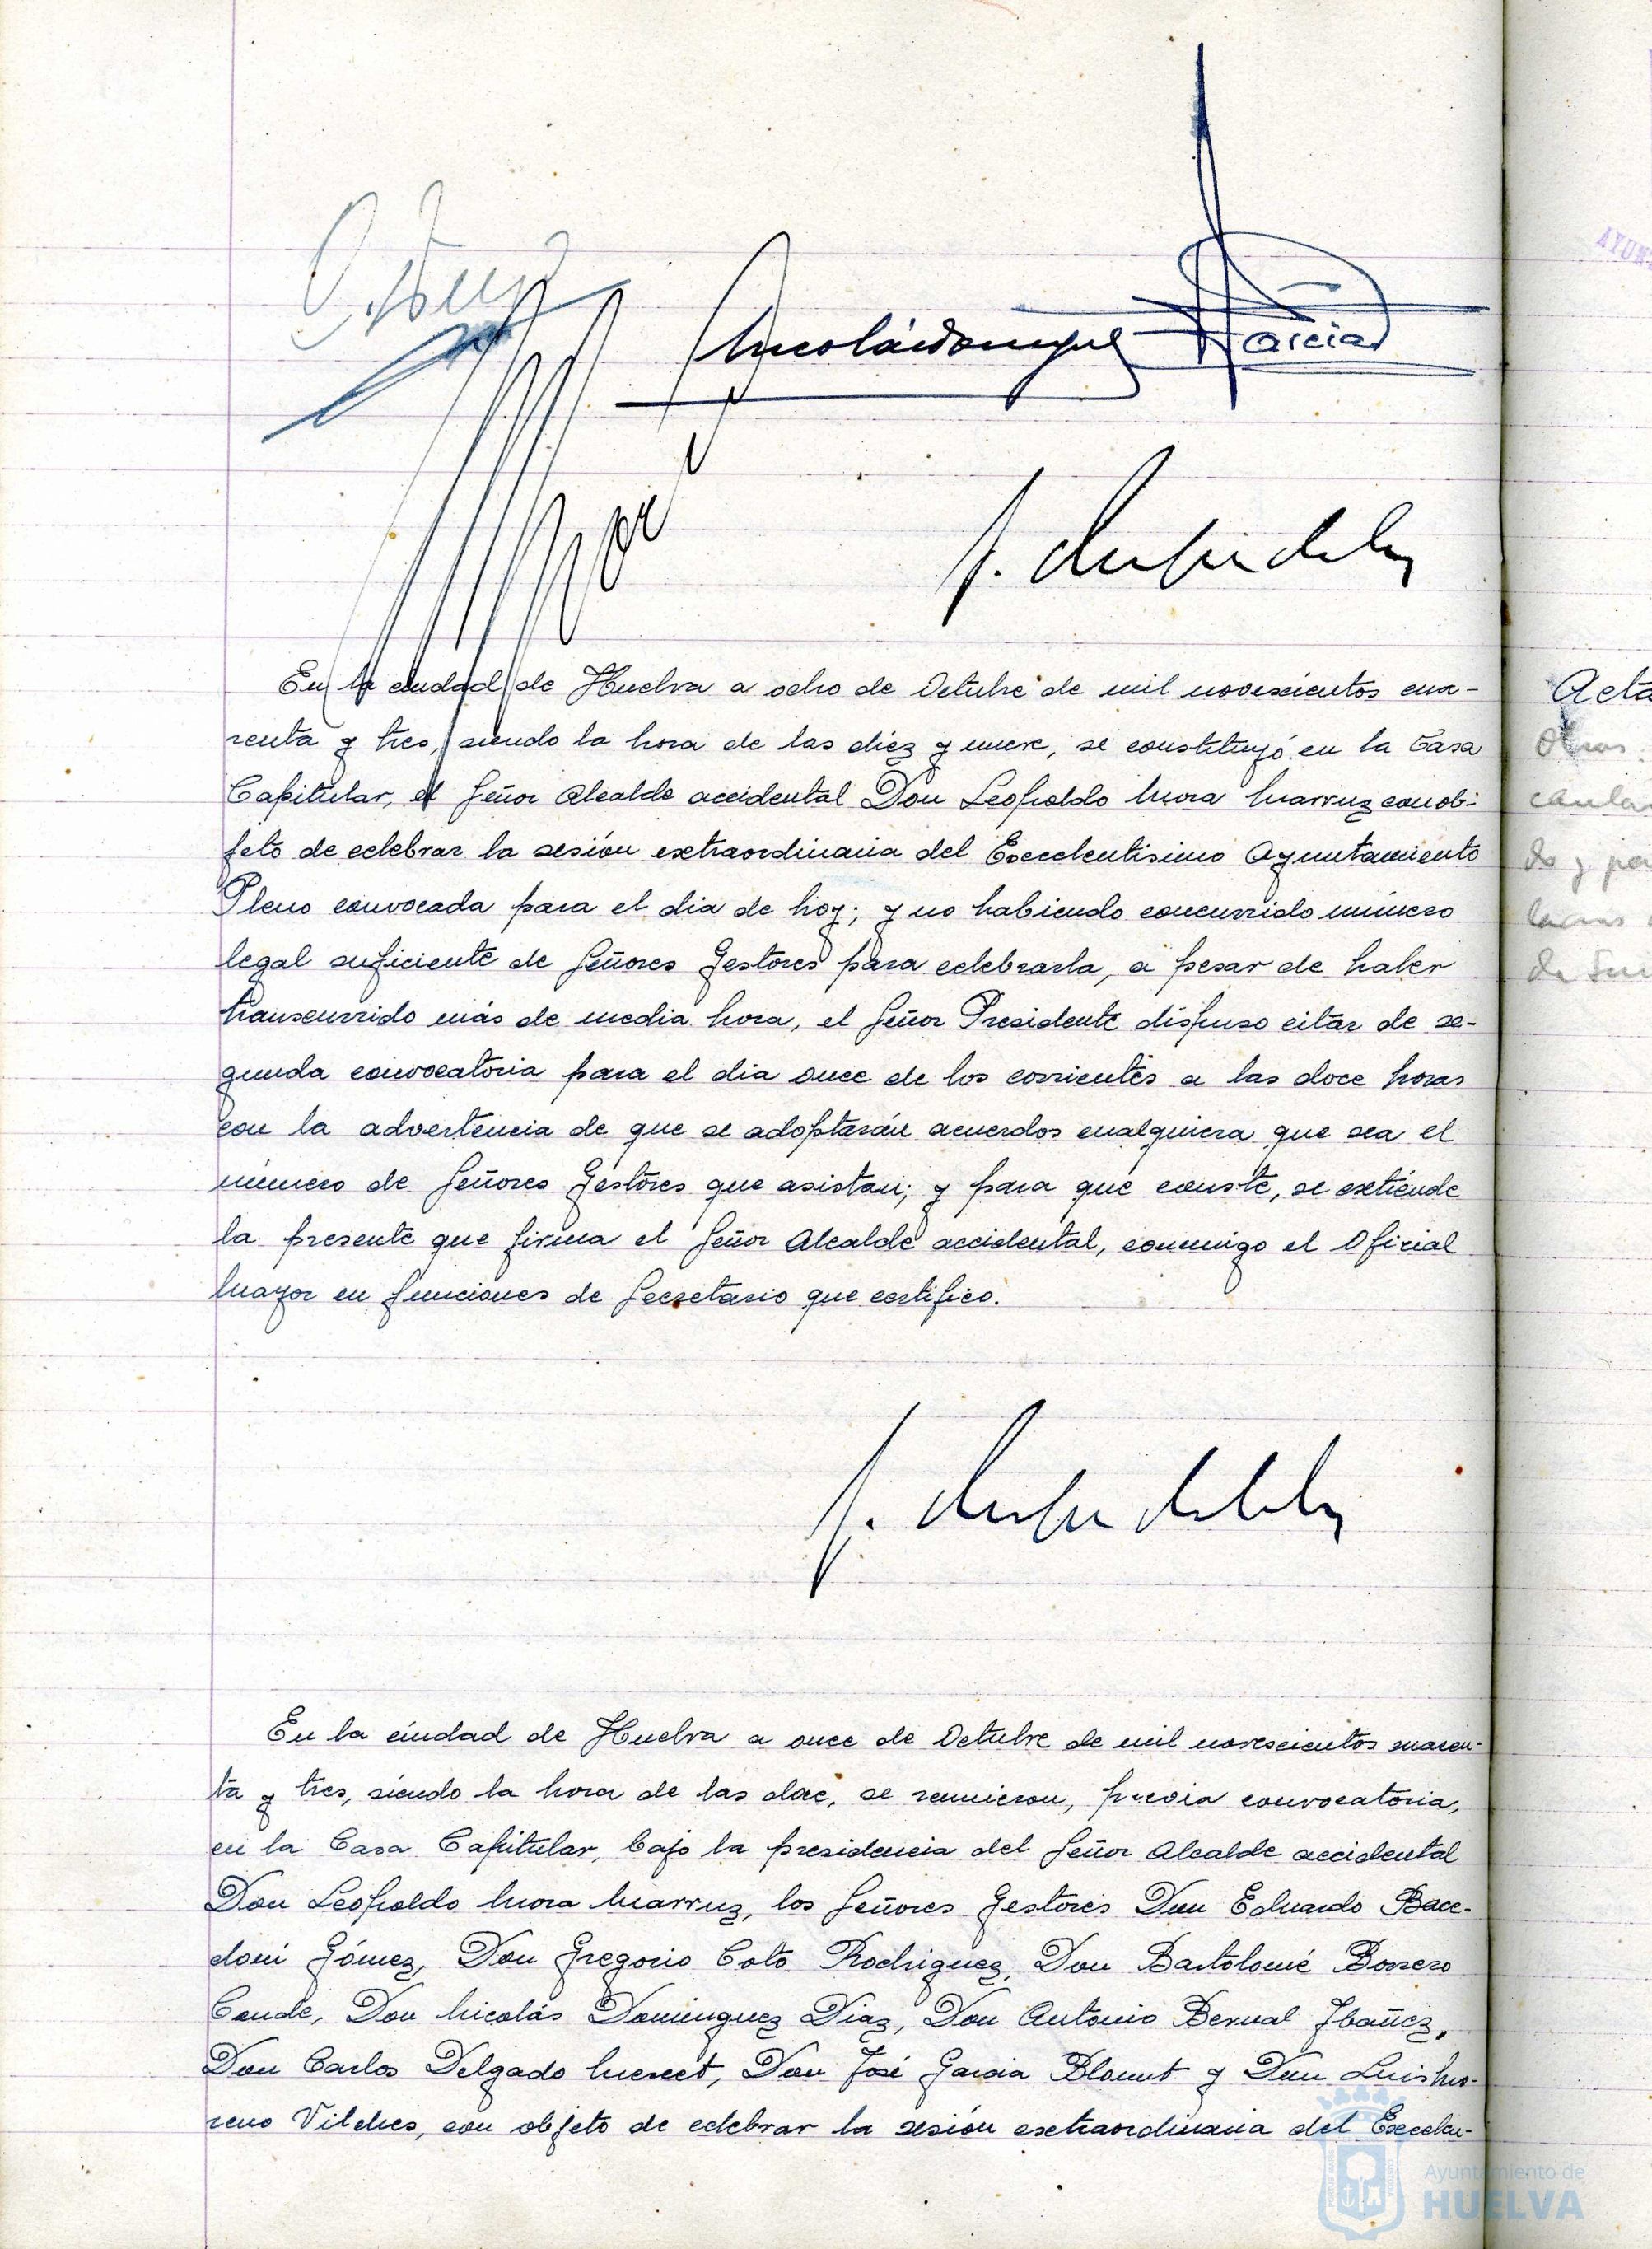 García
En la ciudad de Huelva a ocho de Octubre de mil novescientos cua-
renta y tres, siendo la hora de las diez y nueve, se constituyó en la Casa
Capitular, el Señor Alcalde accidental Don Leopoldo Mora Marruz con ob-
jeto de celebrar la sesión extraordinaria del Excelentisimo Ayuntamiento
Pleno convocada para el dia de hoy; y no habiendo concurrido número
legal suficiente de Señores Gestores para celebrarla, a pesar de haber
transcurrido más de media hora, el Señor Presidente dispuso citar de se-
gunda convocatoria para el dia once de los corrientes a las doce horas
con la advertencia de que se adoptarán acuerdos cualquiera que sea el
número de Señores Gestores que asistan; y para que conste, se extiende
la presente que firma el Señor Alcalde accidental, conmigo el Oficial
Mayor en funciones de Secretario que certifico.
En la ciudad de Huelva a once de Octubre de mil novescientos cuaren-
ta y tres, siendo la hora de las doce, se reunieron, previa convocatoria,
en la Casa Capitular, bajo la presidencia del Señor Alcalde accidental
Don Leopoldo Mora Marruz, los Señores Gestores Don Eduardo Bace-
doni Gómez, Don Gregorio Coto Rodriguez, Don Bartolomé Borrero
Conde, Don Nicolás Dominguez Diaz, Don Antonio Bernal Ibañez,
Don Carlos Delgado Merect, Don José Garcia Blount y Don Luis Mo-
reno Vilches, con objeto de celebrar la sesión extraordinaria del Excelen-
Acta
Obras
de y per
Ayuntamiento de
HUELVA